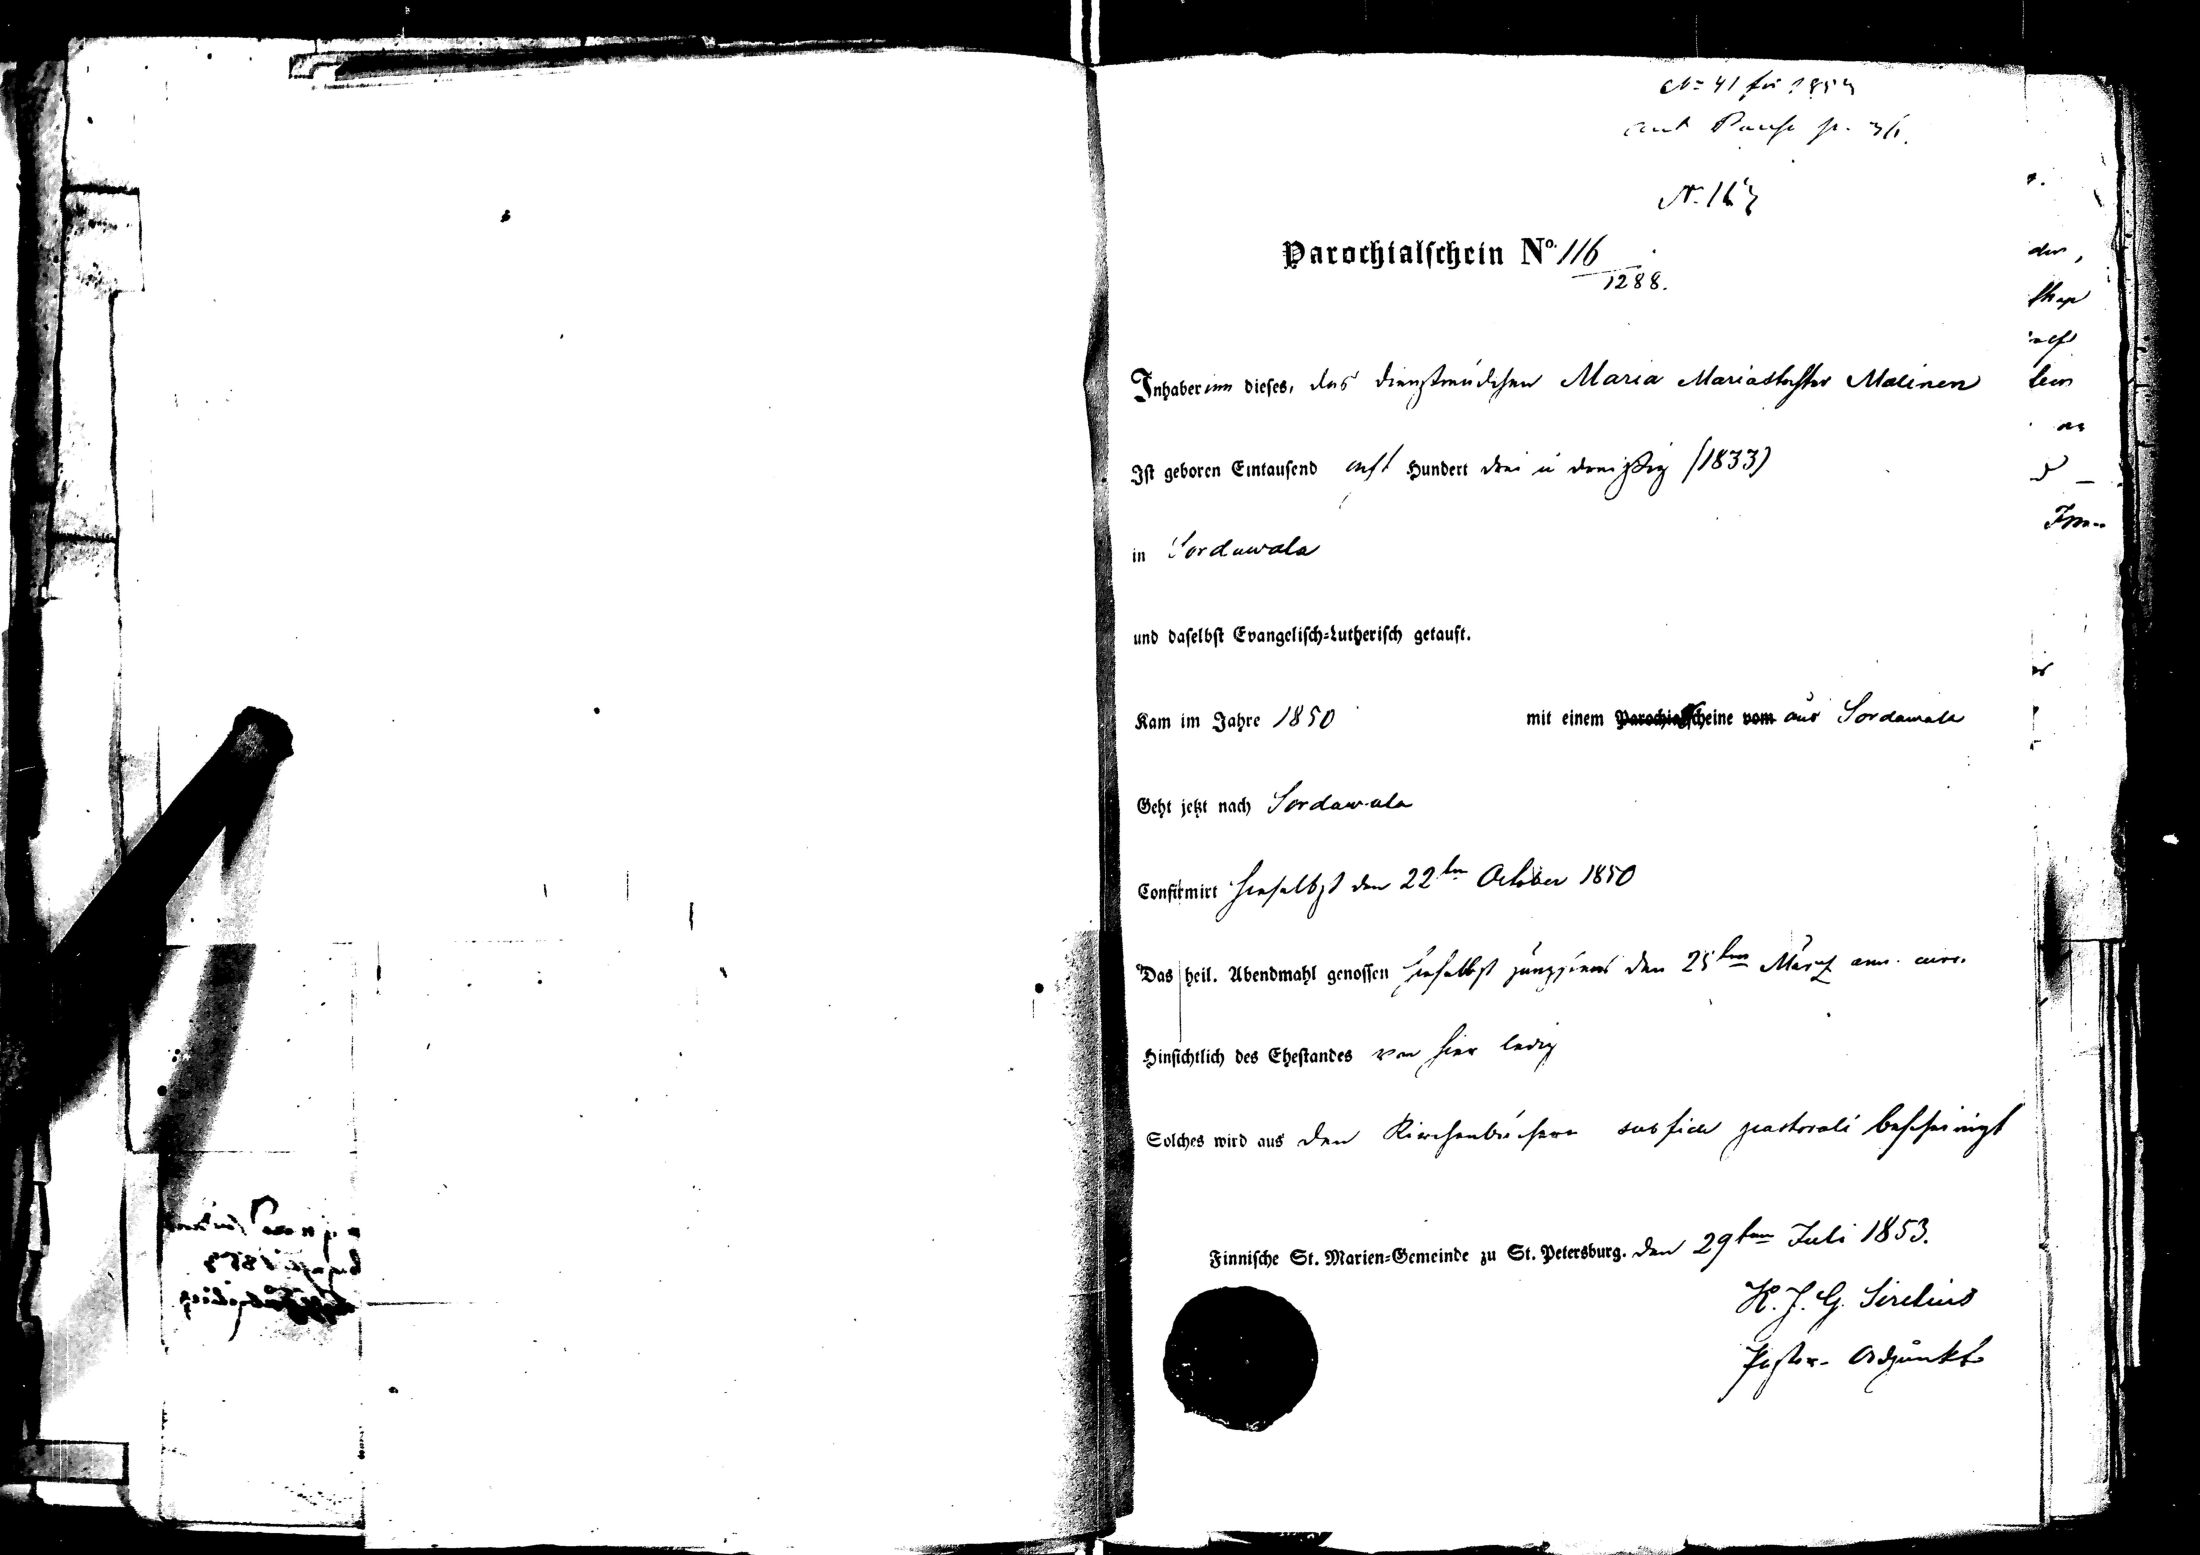 No 41 för 1854
N. 167
Parochialschein No. 116
1288.
Inhaberinn dieses, das Dienstmädchen Maria Mariastochter Malinen
Ist geboren Eintausend acht Hundert drei u dreißig (1833)
in Sordawala
und daselbst Evangelisch-Lutherisch getauft.
Kam im Jahre 1850 mit einem Parochialscheine vom aus Sordawala
Geht jetzt nach Sordawala
Confirmirt hieselbst den 22ten October 1850
Das heil. Abendmahl genossen hieselbst jüngstens den 25ten März ann. curr.
Hinsichtlich des Ehestandes von hier ledig
Solches wird aus den Kirchenbüchern sub fide pastorali bescheinigt
Finnische St. Marien-Gemeinde zu St. Petersburg. den 29ten Juli 1853.
K. J. G. Sirelius
Pastor-Adjunkt